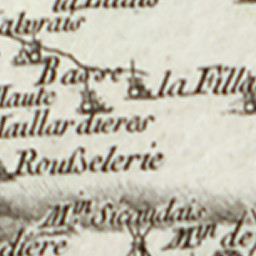 Basse
la Filla
Haute
Maillardieres
Rousselerie
M.in Sicaudais
M.in de
diere